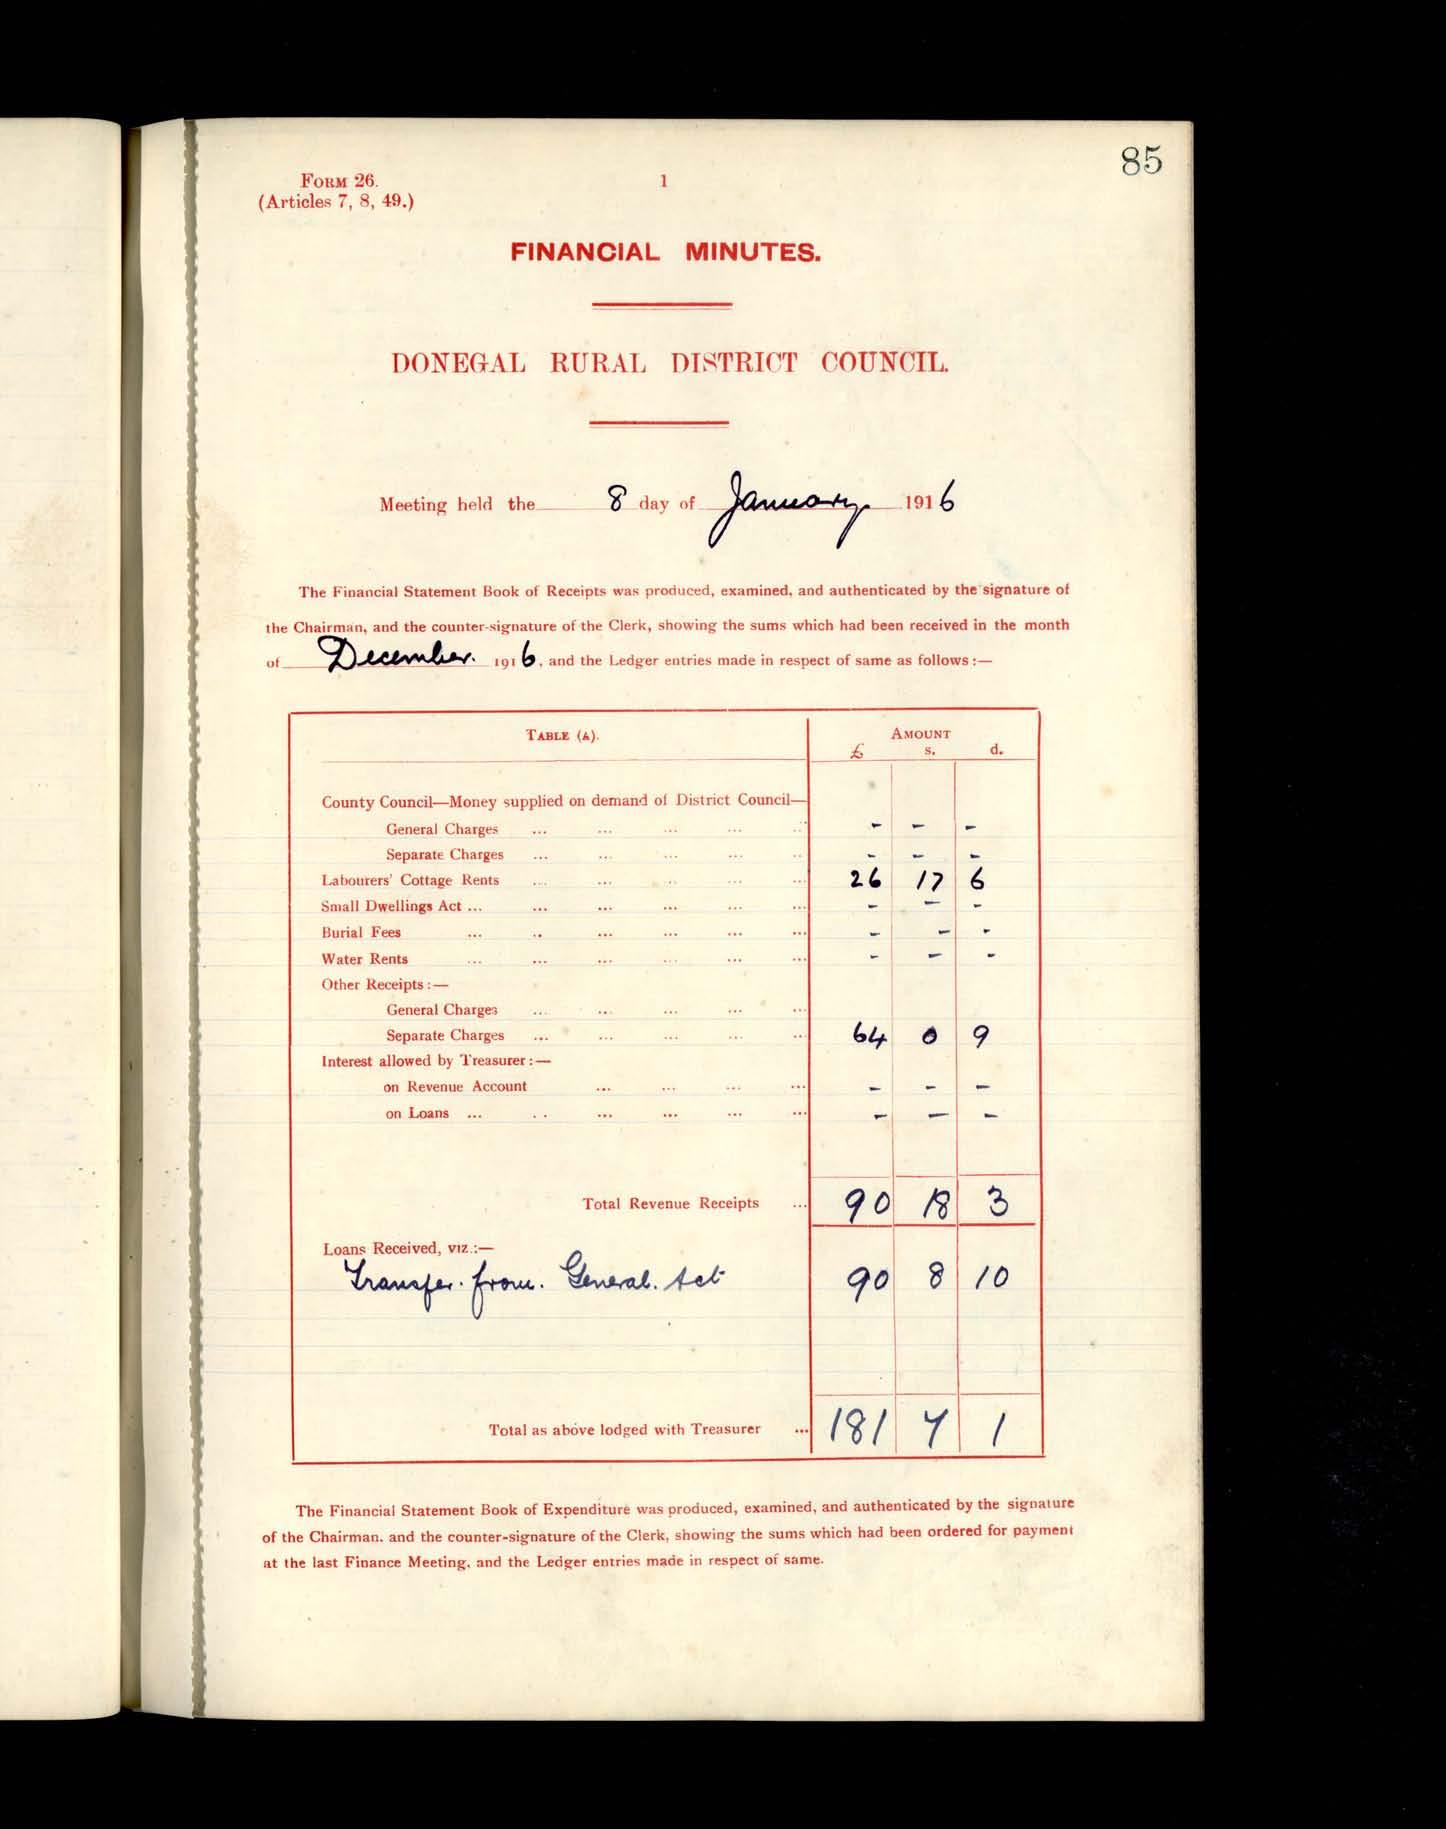 85
FORM 26.
1
(Articles 7, 8, 49.)
FINANCIAL MINUTES.
DONEGAL RURAL DISTRICT COUNCIL.
Meeting held the 8 day of January 1916
The Financial Statement Book of Receipts was produced, examined, and authenticated by the signature of
the Chairman, and the counter-signature of the Clerk, showing the sums which had been received in the month
of December. 1916, and the Ledger entries made in respect of same as follows:—
TABLE (A). AMOUNT
£ s. d.
County Council—Money supplied on demand of District Council—
General Charges ... ... ... ... ... - - -
Separate Charges ... ... ... ... ... - - -
Labourers' Cottage Rents ... ... ... ... ... 26 17 6
Small Dwellings Act ... ... ... ... ... ... - - -
Burial Fees ... ... ... ... ... ... - - -
Water Rents ... ... ... ... ... ... - - -
Other Receipts:—
General Charges ... ... ... ... ...
Separate Charges ... ... ... ... ... 64 0 9
Interest allowed by Treasurer:—
on Revenue Account ... ... ... ... - - -
on Loans ... ... ... ... ... ... - - -
Total Revenue Receipts ... 90 18 3
Loans Received, viz.:—
Transfer. from. General. Act 90 8 10
Total as above lodged with Treasurer ... 181 7 1
The Financial Statement Book of Expenditure was produced, examined, and authenticated by the signature
of the Chairman, and the counter-signature of the Clerk, showing the sums which had been ordered for payment
at the last Finance Meeting, and the Ledger entries made in respect of same.